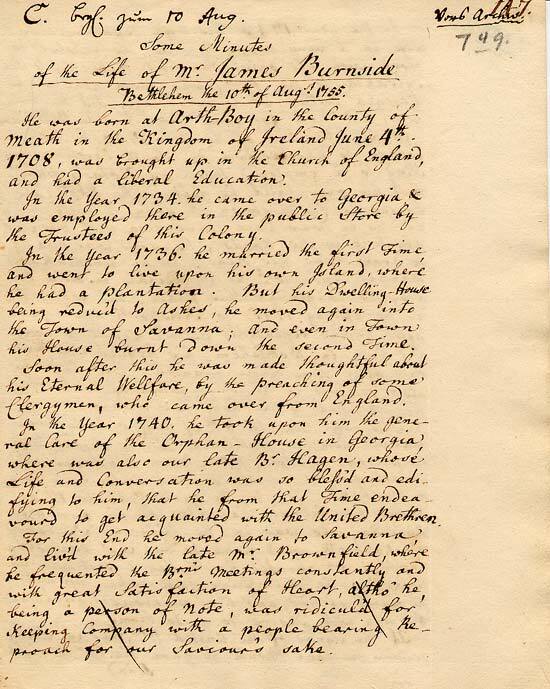 C. Beyl. zum 10 Aug.
749.
Some Minutes
of the Life of Mr. James Burnside
Bethlehem the 10th. of Augt. 1755.
He was born at Arth-Boy in the County of
Meath in the Kingdom of Ireland June 4th.
1708, was brought up in the Church of England,
and had a liberal Education.
In the Year 1734. he came over to Georgia &
was employed there in the public Store by
the Trustees of this Colony.
In the Year 1736. he married the first Time,
and went to live upon his own Island, where
he had a plantation. But his Dwelling-House
being reduc'd to Ashes, he moved again into
the Town of Savanna; and even in Town
his House burnt down the second Time.
Soon after this he was made thoughtful about
his Eternal Wellfare, by the preaching of some
Clergymen, who came over from England.
In the Year 1740. he took upon him the gene-
ral Care of the Orphan-House in Georgia
where was also our late Br. Hagen, whose
Life and Conversation was so bless'd and edi-
fying to him, that he from that Time endea-
vour'd to get acquainted with the United Brethren.
For this End he moved again to Savanna,
and liv'd with the late Mr. Brownfield, where
he frequented the Brns Meetings constantly and
with great Satisfaction of Heart, altho' he,
being a person of Note, was ridicul'd for
Keeping Company with a people bearing Re-
proach for our Saviour's sake.